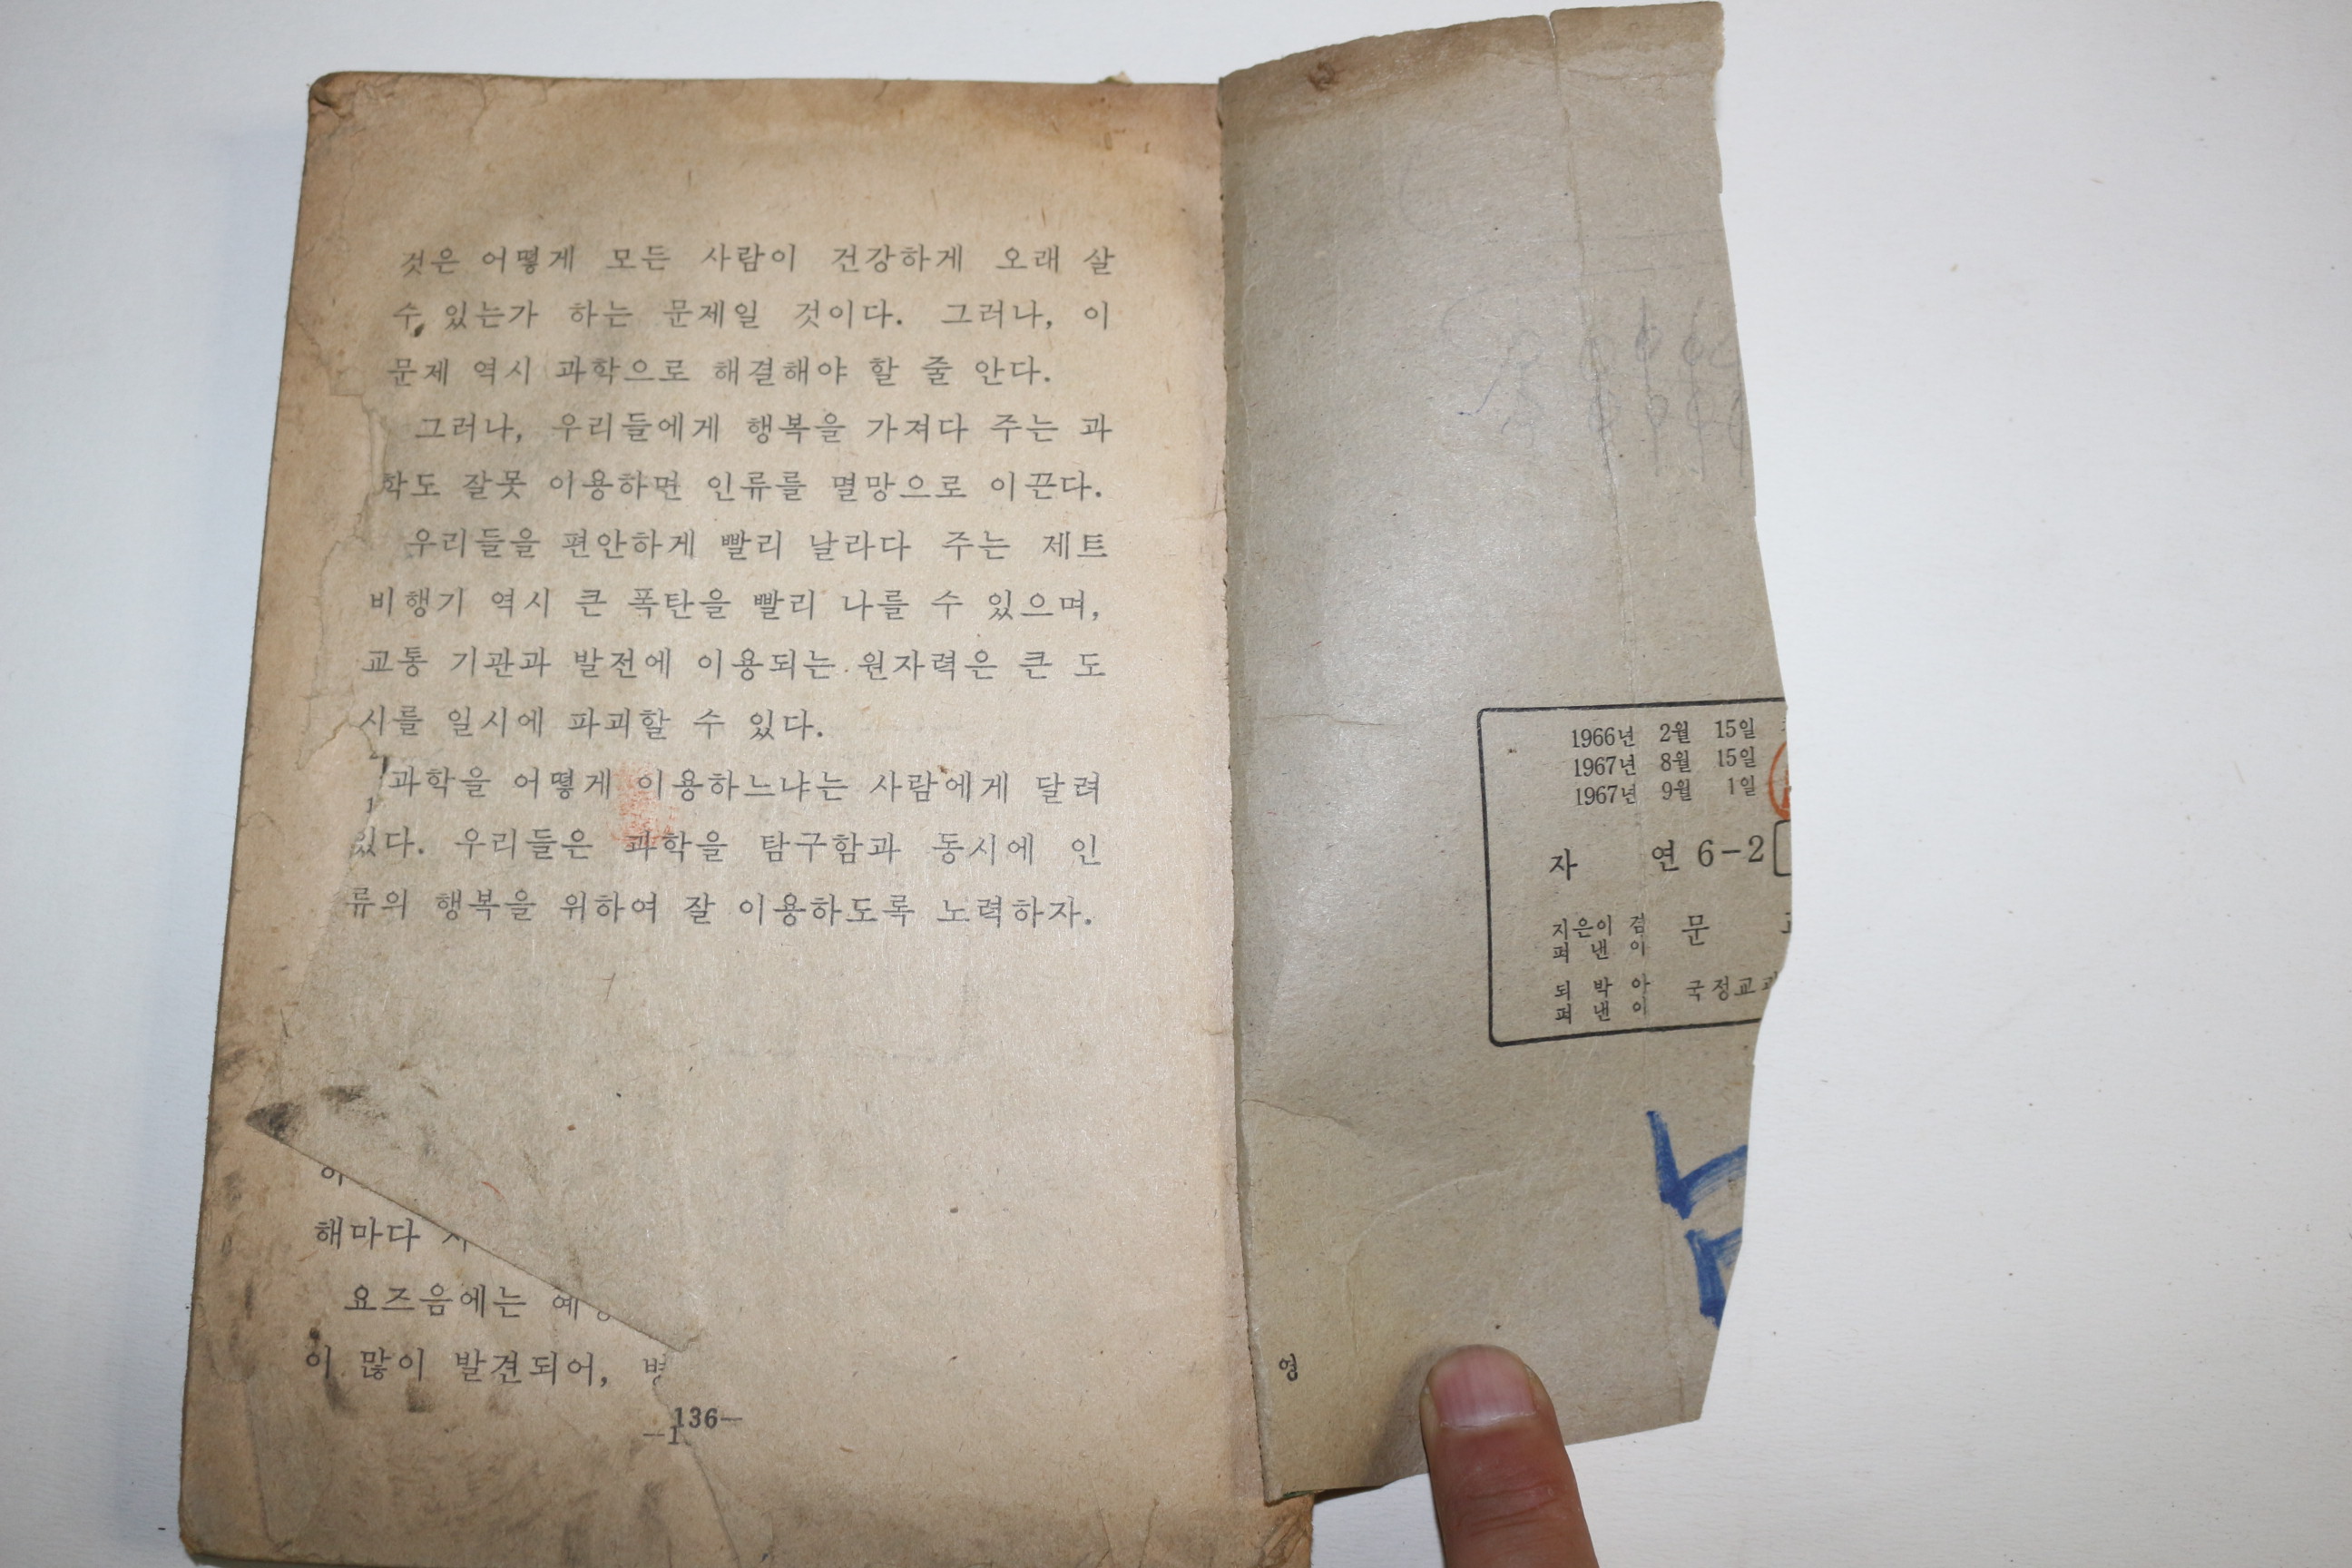 것은 어떻게 모든 사람이 건강하게 오래 살
수 있는가 하는 문제일 것이다. 그러나, 이
문제 역시 과학으로 해결해야 할 줄 안다.
그러나, 우리들에게 행복을 가져다 주는 과
학도 잘못 이용하면 인류를 멸망으로 이끈다.
우리들을 편안하게 빨리 날라다 주는 제트
비행기 역시 큰 폭탄을 빨리 나를 수 있으며,
교통 기관과 발전에 이용되는 원자력은 큰 도
시를 일시에 파괴할 수 있다.
과학을 어떻게 이용하느냐는 사람에게 달려
있다. 우리들은 과학을 탐구함과 동시에 인
류의 행복을 위하여 잘 이용하도록 노력하자.
해마다
요즈음에는 예
이 많이 발견되어,
136—
1966년 2월 15일
1967년 8월 15일
1967년 9월 1일
자 연 6-2
지은이 겸 문
펴 낸 이
되 박 아 국정교
펴 낸 이
영